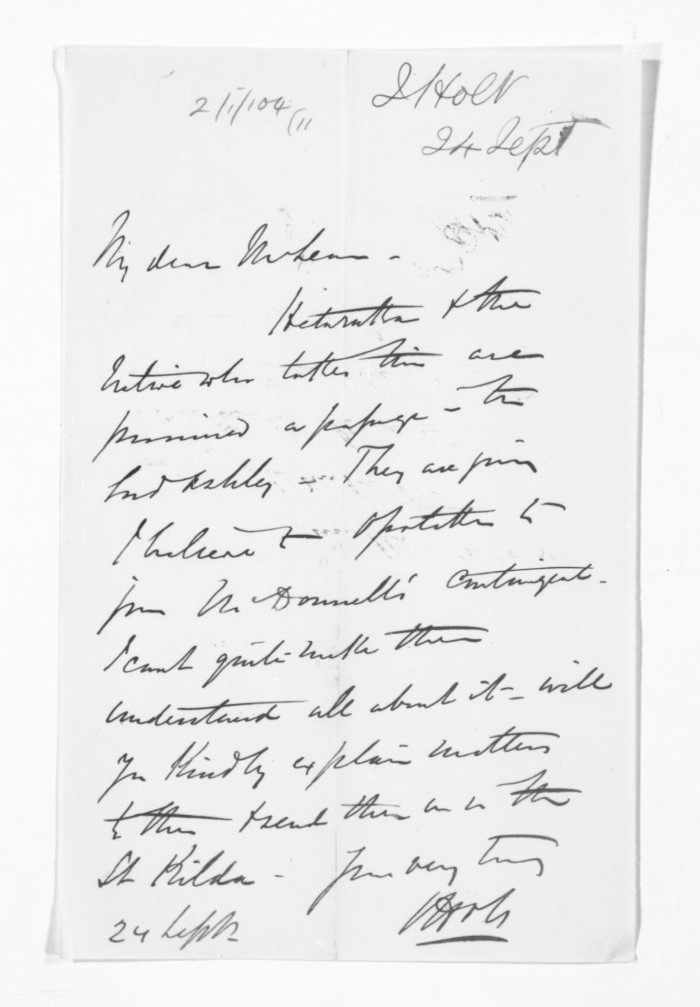 2/1/104/11
J Holt
24 Sept
My dear McLean -
Hetaraka & the
Native who takes this are
promised a passage - the
Lord Ashley - They are going
I believe to Opotiki to
join McDonnell's contingent -
I cant quite make them
understand all about it - will
you kindly explain matters
to them & send them on in the
St Kilda - Yours very truly
Holt
24 Sept